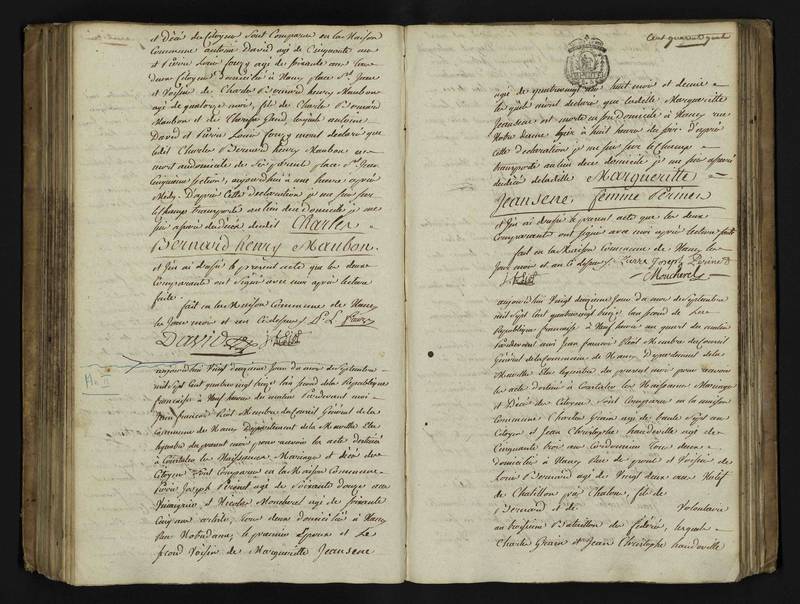 et Décès des Citoyens sont Comparus en la Maison
Commune antoine David agé de Cinquante ans
et Pierre Louis agé de soixante ans tous
deux Citoyens domiciliés à Nancy place St. Jean
et Voisins de Charles Bernard henry Maubon
agé de quatorze mois, fils de Charles Bernard
Maubon et de lesquels antoine
David et Pierre Louis mont déclaré que
ledit Charles Bernard henry Maubon est
mort au domicile de ses parents place St. Jean
Cinquième section, aujourd'hui à une heure après
Midy. D'après Cette déclaration je me suis sur
le champ transporté au lieu du domicile je me
suis assuré du décès dudit Charles
Bernard henry Maubon.
et j'en ai dressé le présent acte que les deux
Comparants ont signé avec moi après lecture
faite.
fait en la Maison Commune de Nancy
les Jour mois et an Ci-dessus P. L.
David
aujourd'hui Vingt deuxième jour du mois de Septembre
mil sept Cent quatre vingt treize l'an second de la République
française à Neuf heures du matin Pardevant moi
Jean françois Membre du Conseil Général de la
Commune de Nancy Département de la Meurthe Elu
le présent mois pour recevoir les actes destinés
à Constater les Naissances Mariages et décès des
Citoyens Sont Comparus en la Maison Commune
Pierre Joseph Perinet agé de Soixante douze ans
Vinaigrier et Nicolas Moncherel agé de soixante
Cinq ans tous deux domiciliés à Nancy
Rue Notredame, le premier Epoux et Le
second Voisin de Margueritte Jeansene
Cent quarante
agé de quatrevingt huit mois et demie
lesquels mont déclaré que ladite Margueritte
Jeansene est morte en son domicile à Nancy rue
Notre dame hier à huit heures du soir. d'après
Cette déclaration je me suis sur le Champ
transporté au lieu dece domicile je me suis assuré
du décès de ladite Margueritte
Jeansene, femme Perinet
et j'en ai dressé le présent acte que les deux
Comparants ont signé avec moi après lecture faite
fait en la Maison Commune de Nancy les
Jour mois et an Ci dessus Pierre Joseph Perinet
Moncherel
aujourd'hui Vingt deuxième jour du mois de Septembre
mil sept Cent quatrevingt treize l'an second de la
République française à Neuf heures un quart du matin
Pardevant moi Jean françois Membre du Conseil
Général de la Commune de Nancy département de la
Meurthe Elu le présent mois pour recevoir
les actes destinés à Constater les Naissances Mariages
et Décès des Citoyens Sont Comparus en la maison
Commune Charles Grain agé de trente sept ans
Citoyen et Jean Christophe haudeville agé de
Cinquante trois ans Cordonnier tous deux
Domiciliés à Nancy Rue de et Voisins de
Louis Bernard agé de Vingt deux ans Natif
de Chatillon près Chalons, fils de
Bernard et de Volontaire
au troisième Bataillon des fédérés, lesquels
Charles Grain et Jean Christophe haudeville